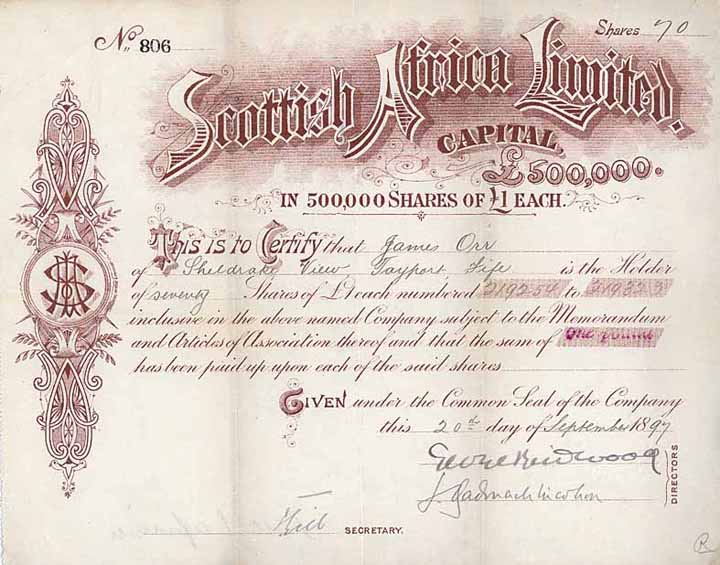 No. 806
Shares 70
Scottish Africa Limited.
CAPITAL,
£500,000.
IN 500,000 SHARES OF £1 EACH.
This is to Certify that James Orr
of Sheldrake View, Tayport, Fife is the Holder
of seventy Shares of £1 each numbered 219254 to 219323
inclusive in the above named Company subject to the Memorandum
and Articles of Association thereof and that the sum of One pound
has been paid up upon each of the said shares
GIVEN under the Common Seal of the Company
this 20th day of September 1897
DIRECTORS
SECRETARY.